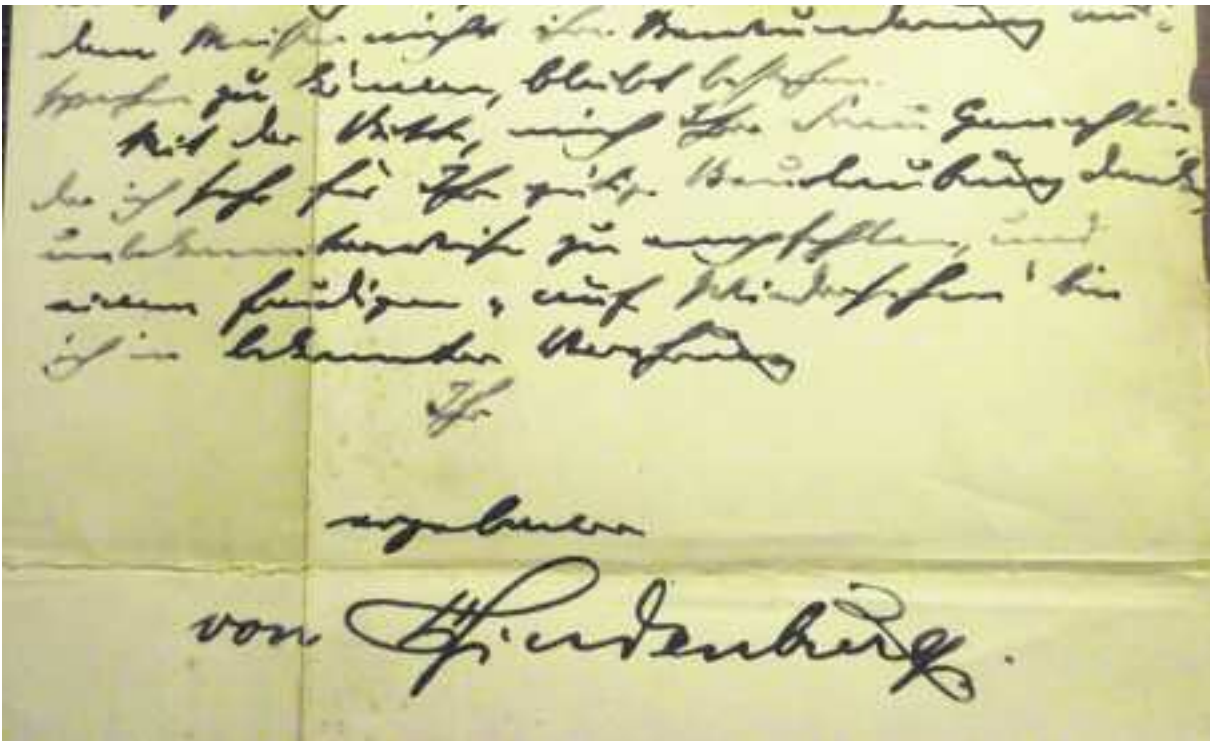 dem Meister nicht ihre Bewunderung aus-
sprechen zu können, bleibt bestehen.
Mit der Bitte, mich Ihrer Frau Gemahlin
der ich sehr für Ihre gütige Beurlaubung danke
unbekannterweise zu empfehlen, und
einem freudigen „auf Wiedersehen“ bin
ich in bekannter Verehrung
Ihr
ergebener
von Hindenburg.